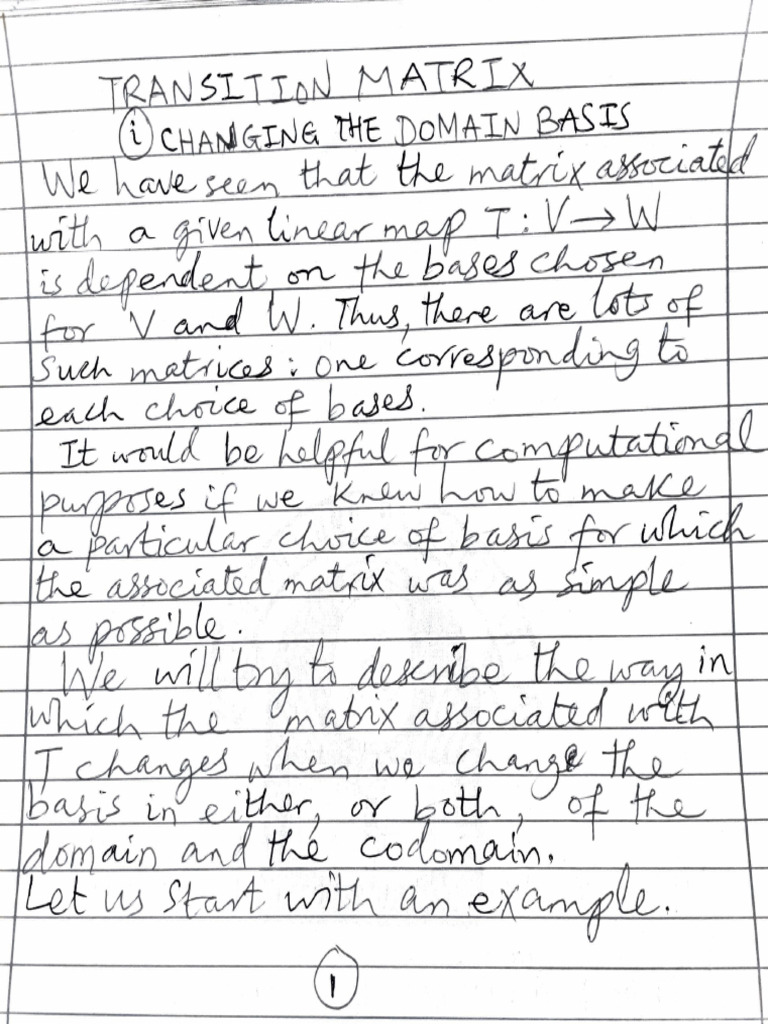 TRANSITION MATRIX
(i) CHANGING THE DOMAIN BASIS
We have seen that the matrix associated
with a given linear map T : V → W
is dependent on the bases chosen
for V and W. Thus, there are lots of
such matrices : one corresponding to
each choice of bases.
It would be helpful for computational
purposes if we knew how to make
a particular choice of basis for which
the associated matrix was as simple
as possible.
We will try to describe the way in
which the matrix associated with
T changes when we change the
basis in either, or both, of the
domain and the codomain.
Let us start with an example.
1